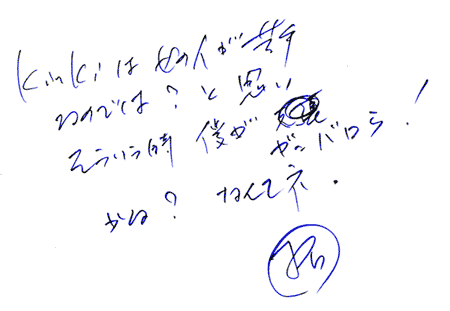 KinKiは女の人が苦手
なのでは？と思い
そういう時 僕が
ガンバロう！
かな？ なんてネ.